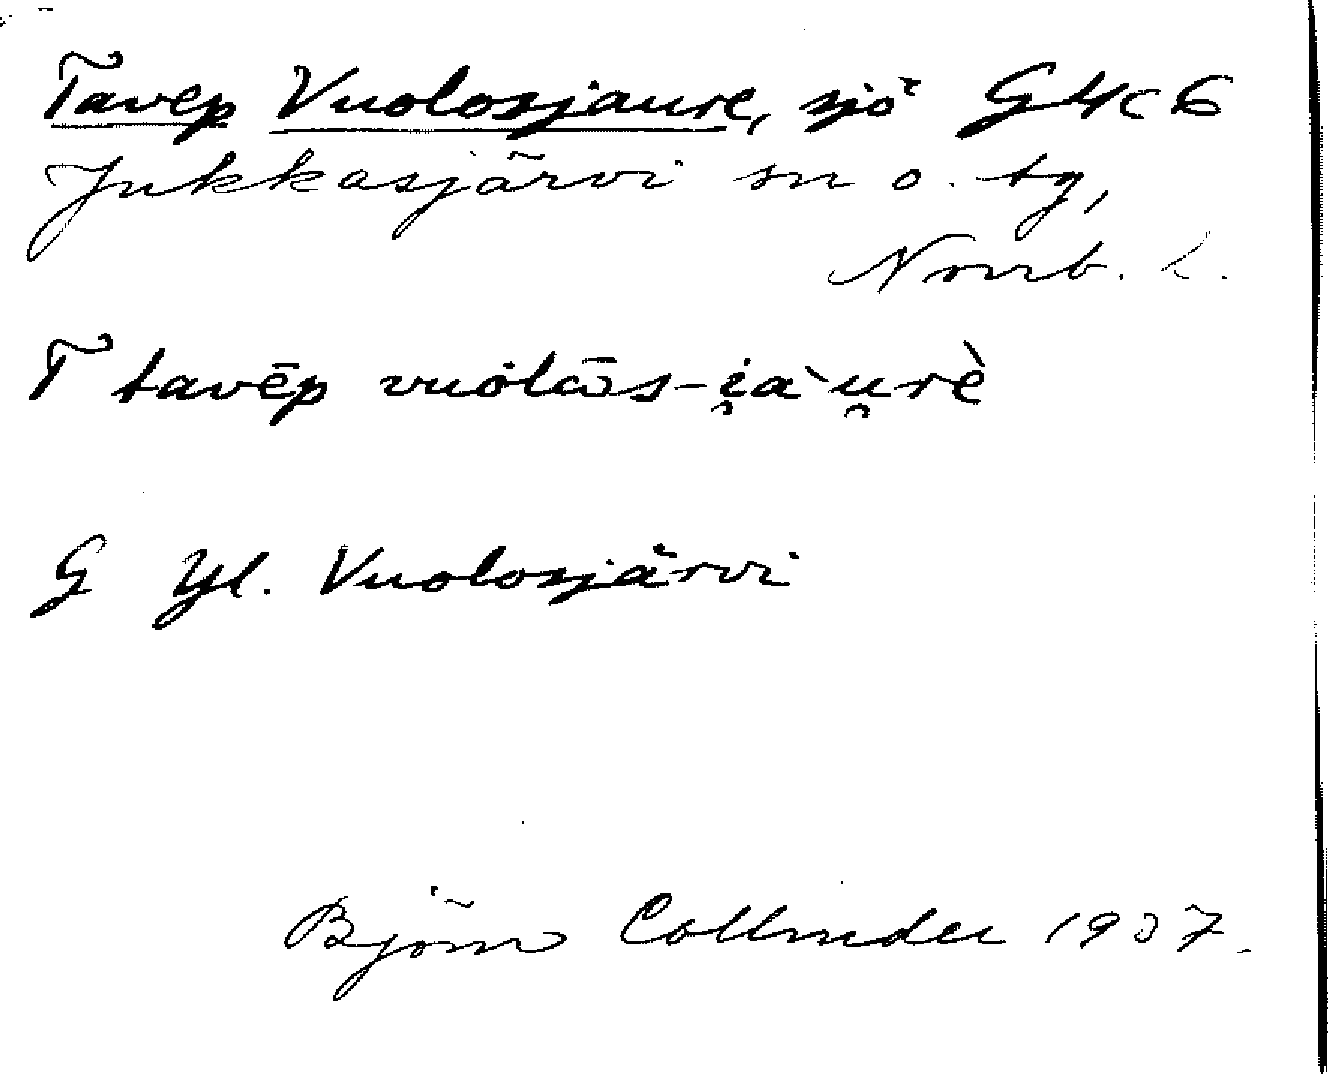 Tavep Vuolosjaure, sjö G4c6
Jukkasjärvi sn o. tg,
Norrb. L.
T tavēp vuolås-i̯à`u̯rè
G Yl. Vuolosjärvi
Björn Collinder 1937.